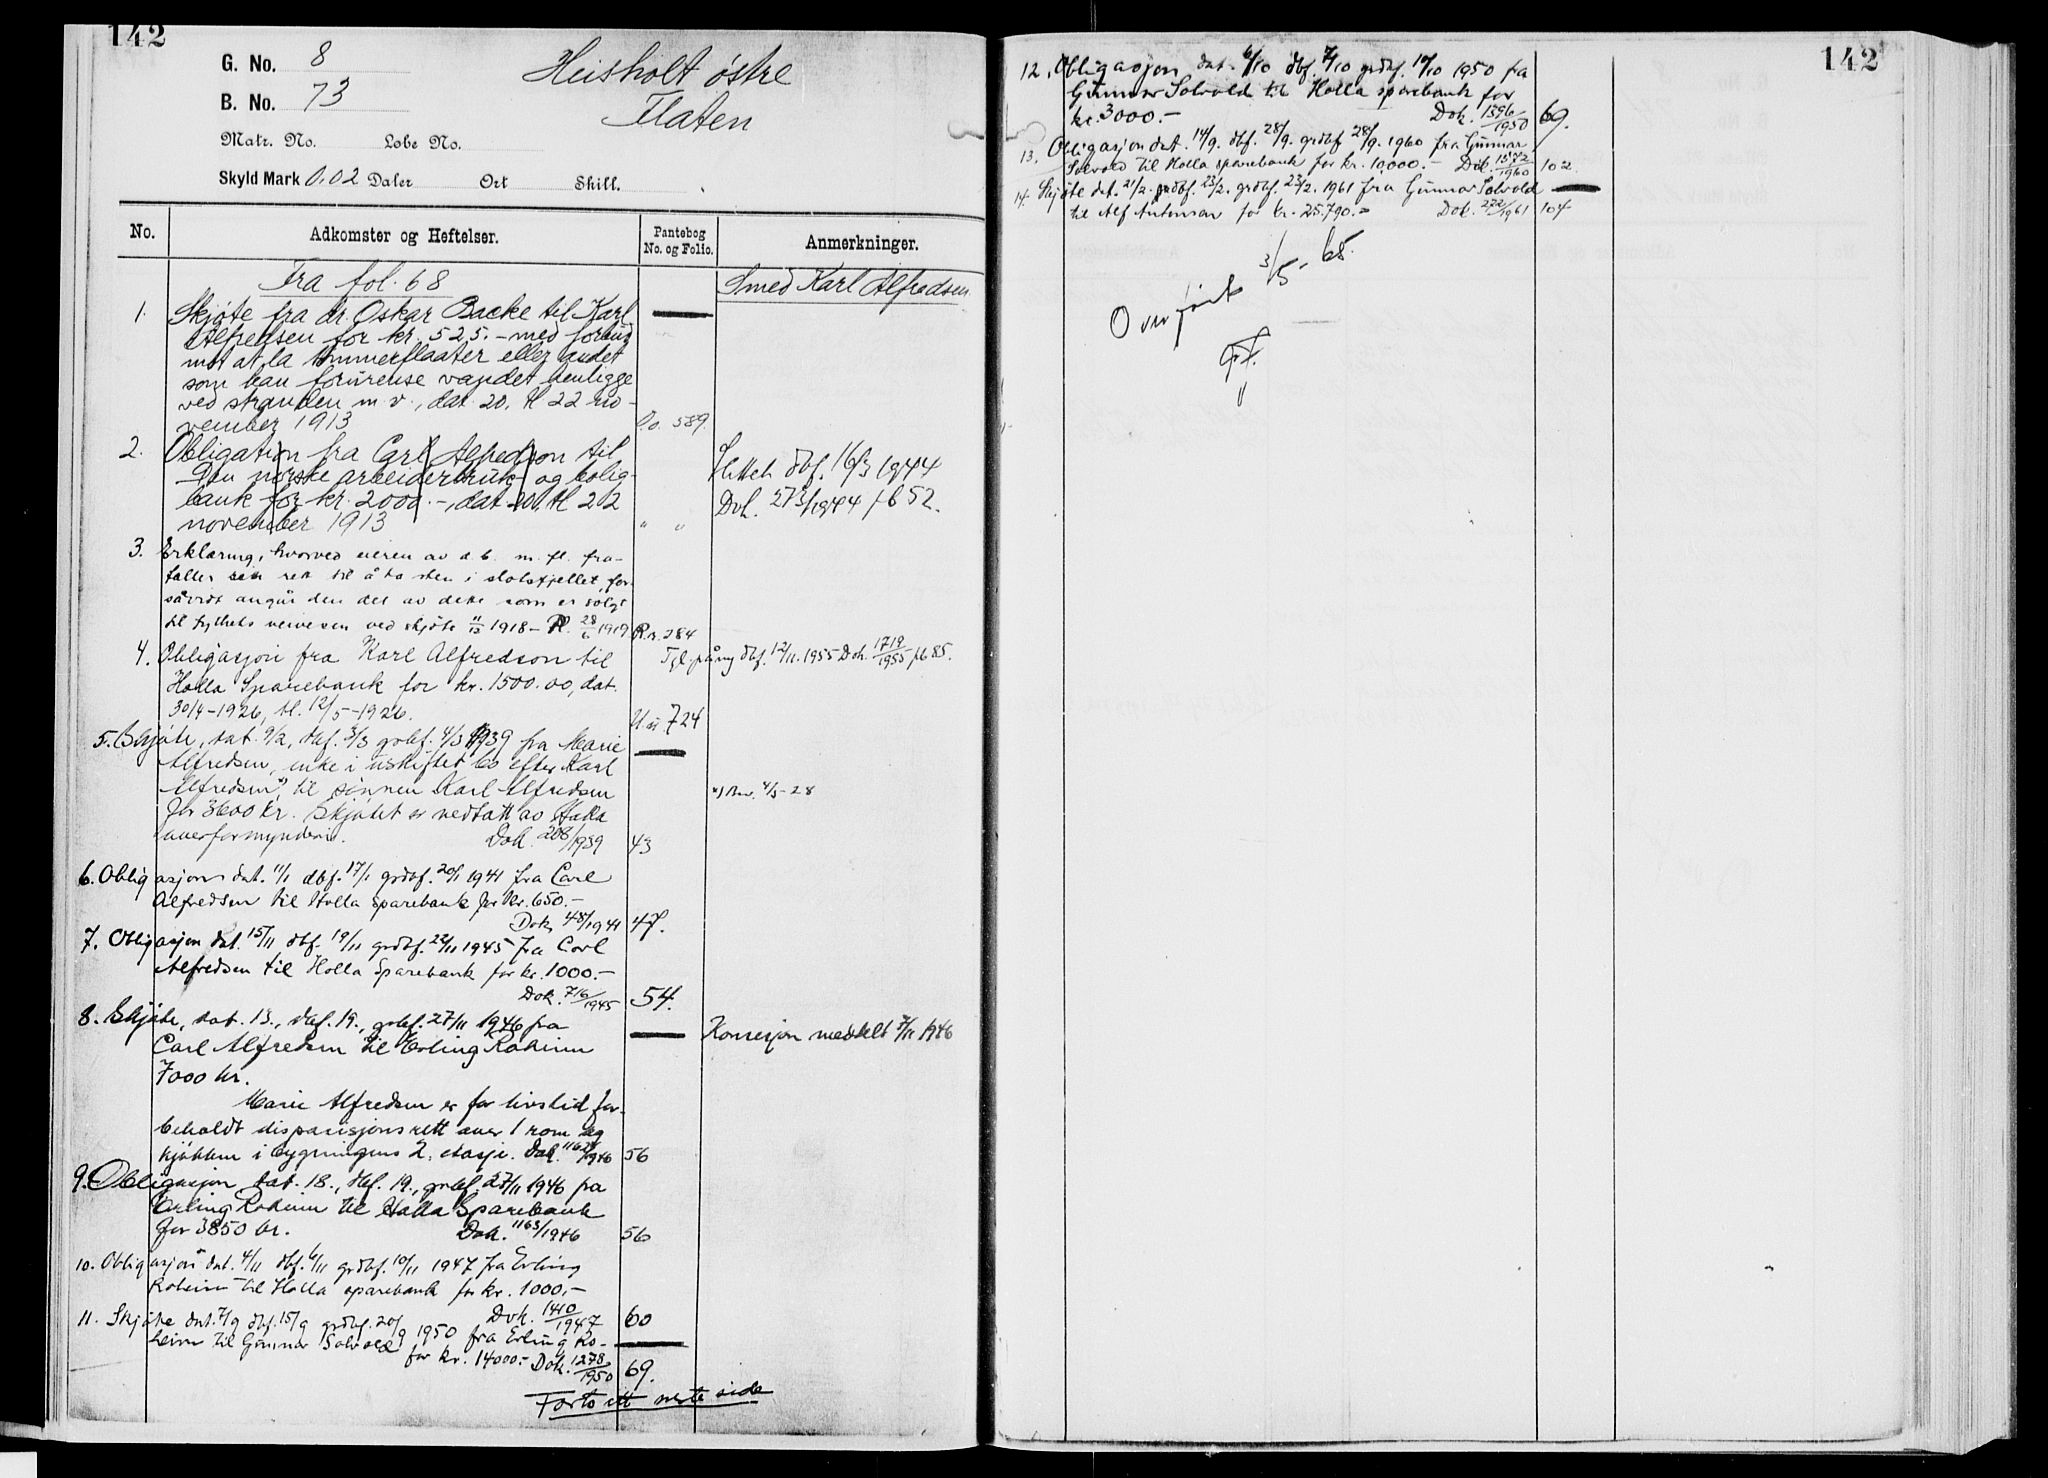 142
G. No. 8
B. No. 73
Heisholt østre
Flaten
Matr. No. Løbe No.
Skyld Mark 0.02 Daler Ort Skill.
No. Adkomster og Heftelser. Pantebog No. og Folio. Anmerkninger.
Fra fol. 68
Smed Karl Alfredsen
1. Skjøte fra dr. Oskar Backe til Karl
Alfredsen for kr. 525.- med forbud
mot at la tømmerflaater eller andet
som kan forurense vandet henligge
ved stranden m.v., dat. 20. tl 22 no-
vember 1913 589.
2. Obligation fra Carl Alfredson til
Den norske arbeiderbruk og bolig-
bank for kr. 2000.-, dat. 20. tl 22
november 1913 " "
Slettet dbf. 16/3 1944
Dok. 273/1944 fb 52.
3. Erklæring, hvorved eieren av d.b. m. fl. fra-
faller sin ret til å ta sten i slotsfjellet, for-
såvidt angår den del av dette som er solgt
til fylkets veivesen ved skjøte 11/12 1918 - tl. 28/6 1919 284
4. Obligasjon fra Karl Alfredson til
Holla Sparebank for kr. 1500.00, dat.
30/4-1926, tl. 12/5-1926. 724
Tgl. på ny dbf. 12/11. 1955 Dok. 1719/1955 fb 85.
5. Skjøte, dat. 9/2, dbf. 3/3 grdbf. 4/3 1939 fra Marie
Alfredsen, enke i uskiftet bo efter Karl
Alfredsen x) til sønnen Karl Alfredsen
for 3600 kr. Skjøtet er vedtatt av Holla
overformynderi. Dok. 208/1939 43
x) Bev. 4/5-28
6. Obligasjon dat. 11/1 dbf. 17/1 grdbf. 20/1 1941 fra Carl
Alfredsen til Holla sparebank for kr. 650.-
Dok. 48/1941 47.
7. Obligasjon dat. 15/11 dbf. 19/11 grdbf. 22/11 1945 fra Carl
Alfredsen til Holla Sparebank for kr. 1000.-
Dok. 716/1945 54.
8. Skjøte, dat. 13., dbf. 19., grdbf. 27/11 1946 fra
Carl Alfredsen til Erling Roheim
7000 kr.
Konsesjon meddelt 7/11 1946
Marie Alfredsen er for livstid for-
beholdt disposisjonsrett over 1 rom og
kjøkken i bygningens 2. etasje. Dok. 1162/1946 56
9. Obligasjon, dat. 18., dbf. 19., grdbf. 27/11 1946 fra
Erling Roheim til Holla Sparebank
for 3850 kr. Dok. 1163/1946 56
10. Obligasjon dat. 4/11 dbf. 6/11 grdbf. 10/11 1947 fra Erling
Roheim til Holla sparebank for kr. 1000,-
Dok. 1410/1947 60
11. Skjøte dat. 7/9 dbf. 15/9 grdbf. 20/9 1950 fra Erling Ro-
heim til Gunnar Solvold
for kr. 14000.- Dok. 1278/1950 69.
Forts. ett neste side
142
12. Obligasjon dat. 6/10 dbf. 7/10 grdbf. 17/10 1950 fra
Gunnar Solvold til Holla sparebank for
kr. 3000.- Dok. 1396/1950 69.
13. Obligasjon dat. 14/9. dbf. 28/9. grdbf 28/9. 1960 fra Gunnar
Solvold til Holla sparebank for kr. 10,000.- Dok. 1572/1960 102
14. Skjøte dat. 21/2. dbf. 23/2. grdbf. 23/2. 1961 fra Gunnar Solvold
til Alf Antonsen for kr. 25.790.= Dok. 272/1961 104
Overført 3/5-65.